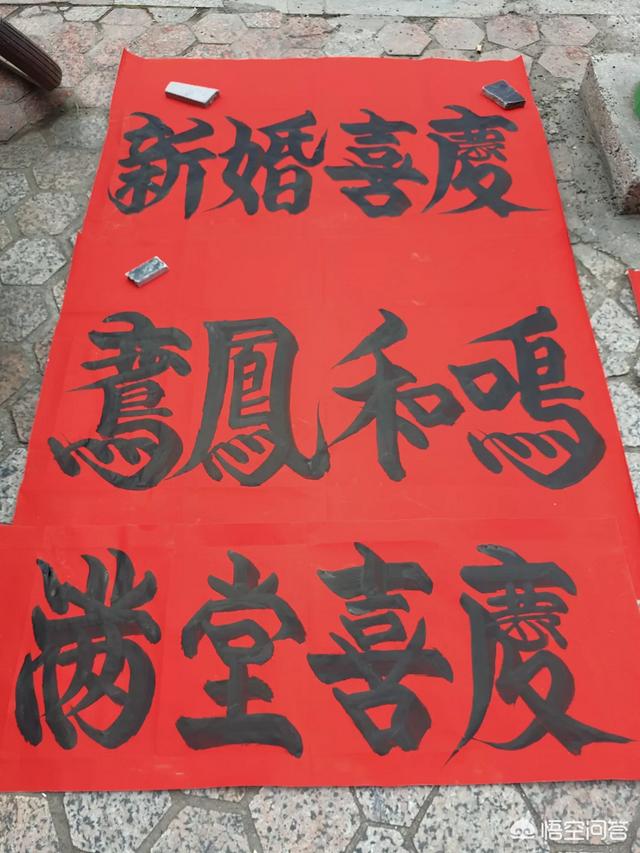 新婚喜慶
鸞鳳和鳴
满堂喜慶
悟空问答